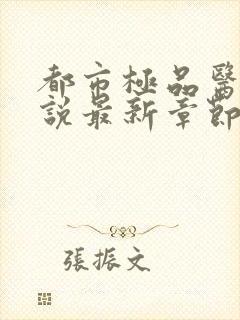 都市極品醫
說最新章節
張振文